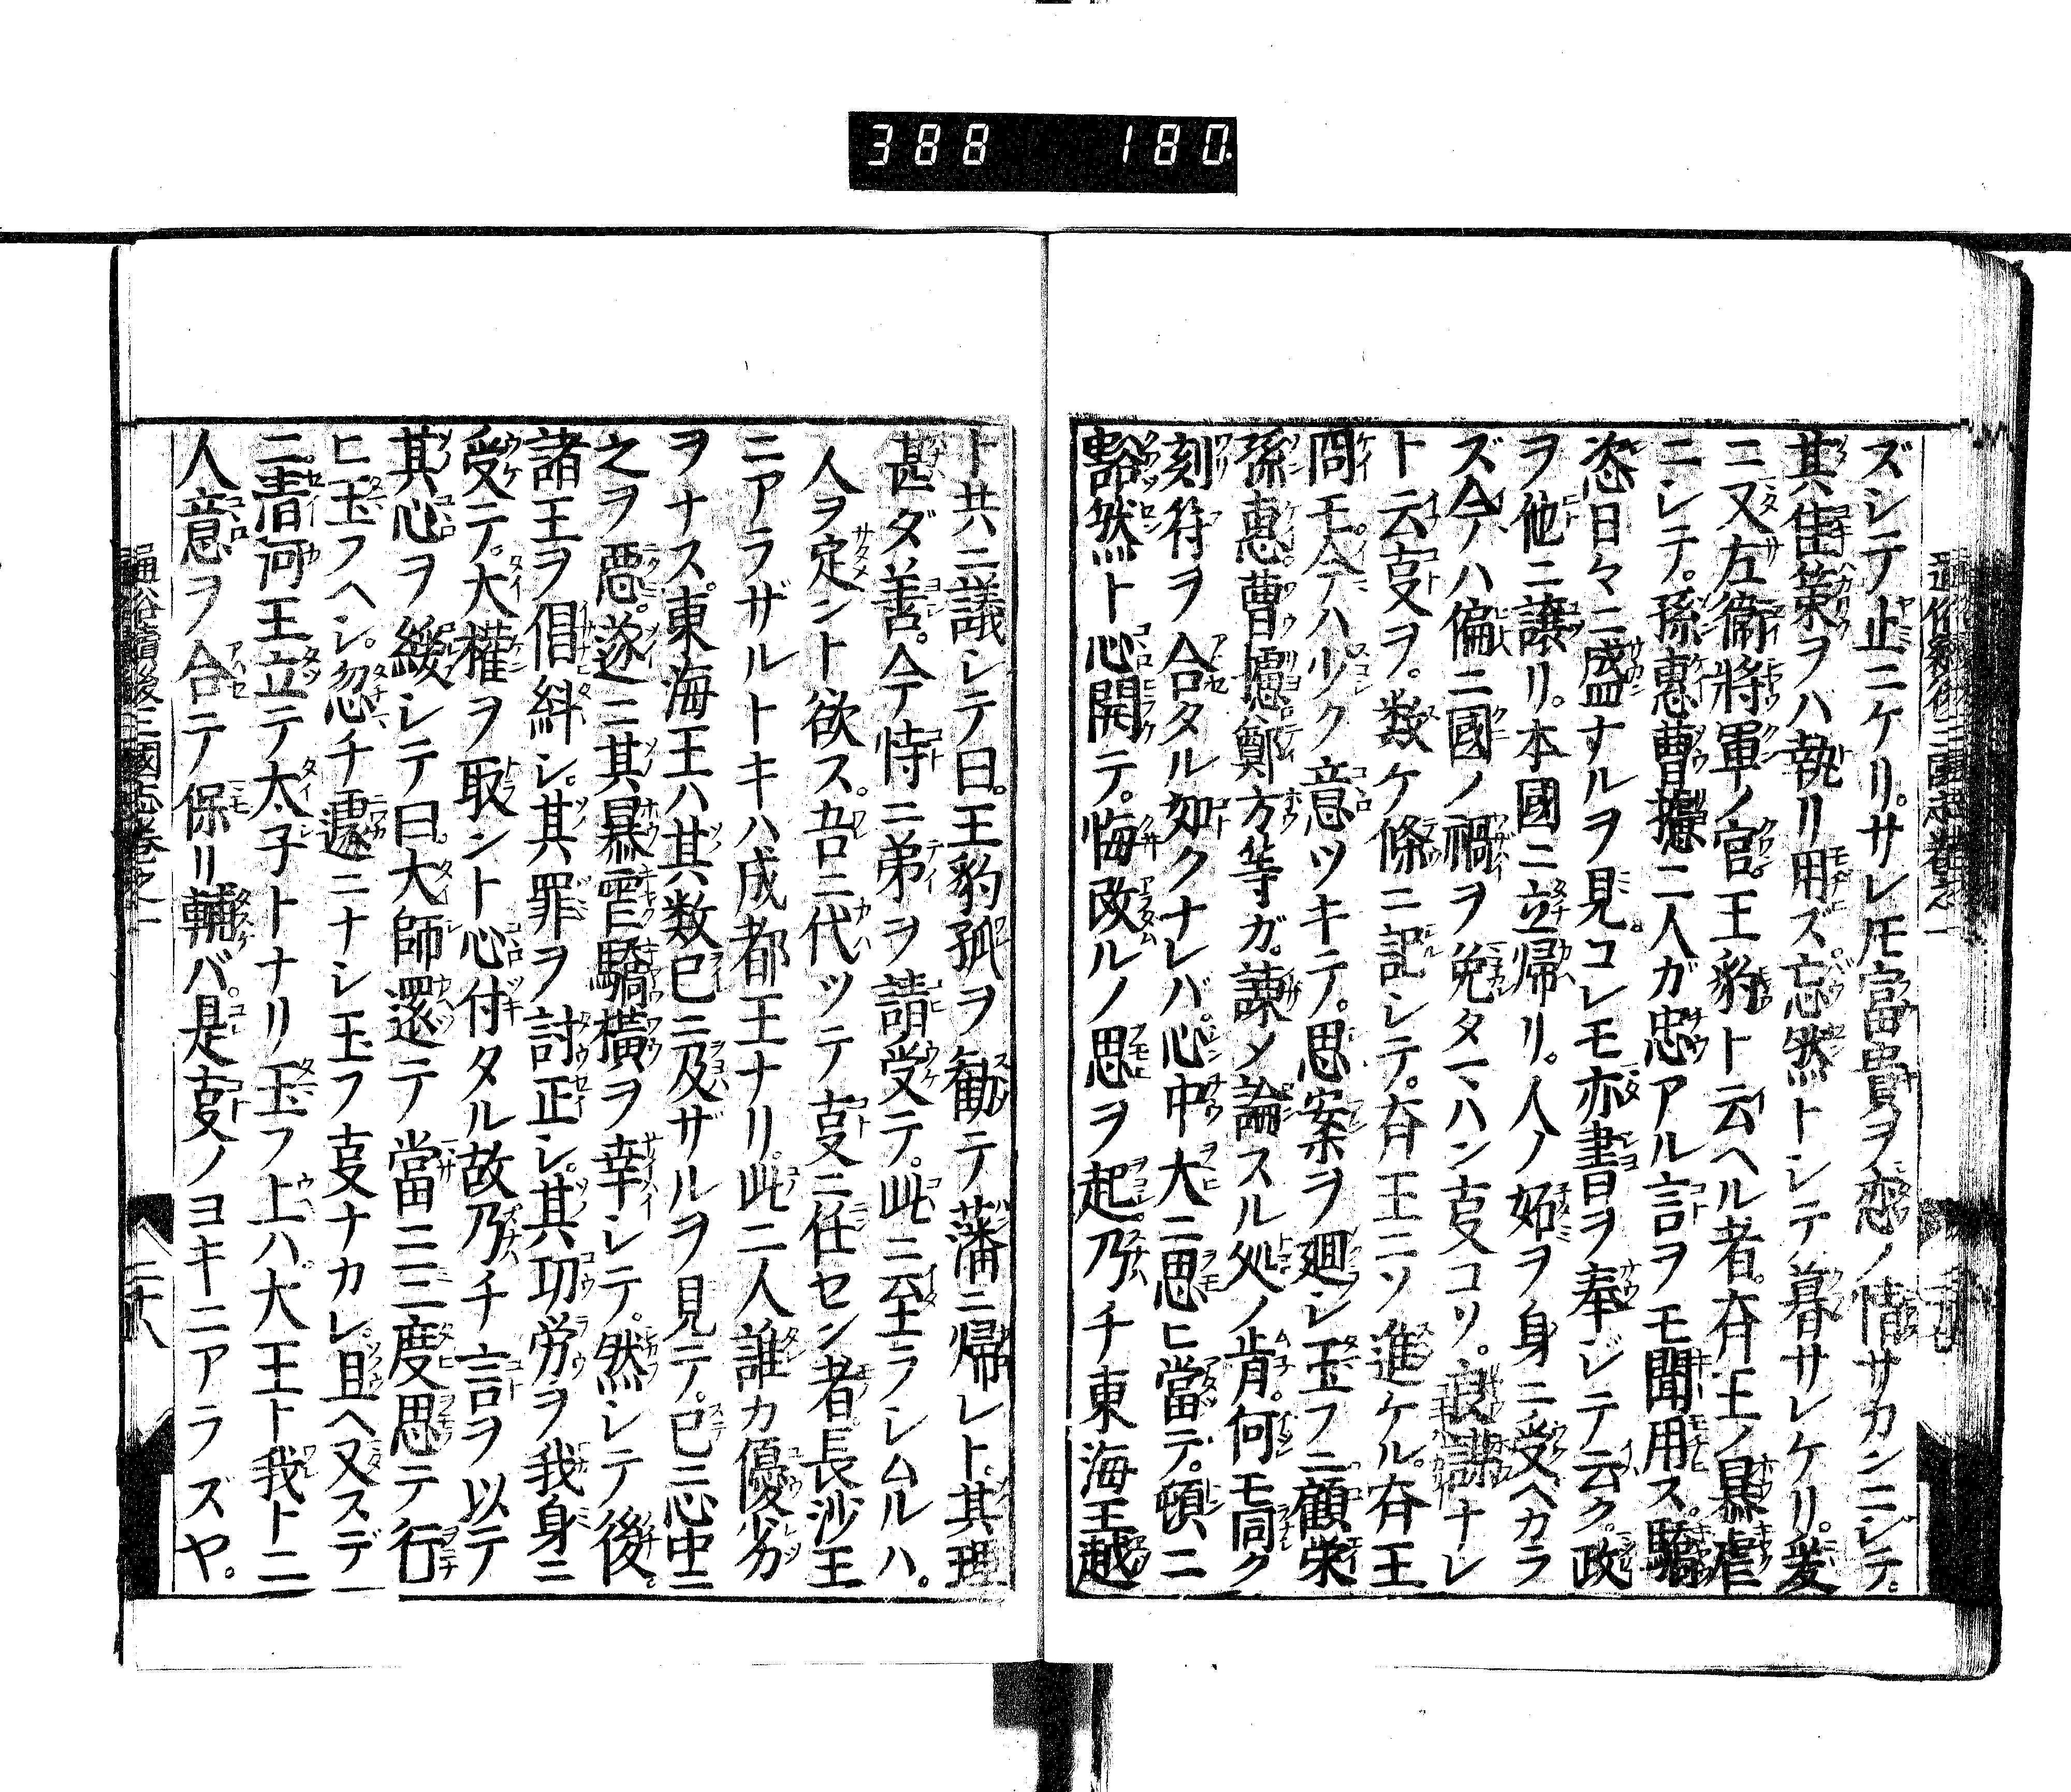 388 180.
ズシテ止ニケリ。サレ𪜈富貴ヲ恋ノ情サカンニシテ。
其佳策ヲハ執リ用ズ。忘然トシテ暮サレケリ。爰
ニ又左衞將軍ノ官。王豹ト云ヘル者。斉王ノ暴虐
ニシテ。孫惠曹攄二人ガ忠アル言ヲモ聞用ス。驕
恣日々ニ盛ナルヲ見。コレモ亦書ヲ奉ジテ云ク。政
ヲ他ニ譲リ。本國ニ立帰リ。人ノ妬ヲ身ニ受ベカラ
ズ今ハ偏ニ國ノ禍ヲ免タマハン㕝コソ。良謀ナレ
ト云㕝ヲ。数ケ條ニ記シテ。斉王ニソ進ケル。斉王
冏モ今ハ少ク意ツキテ。思案ヲ廻シ玉フニ顧栄
孫惠曹攄鄭方等ガ。諌メ論スル処ノ肯。何モ同ク
刻符ヲ合タル如クナレバ。心中大ニ思ヒ當デ。頓ニ
豁然ト心開テ。悔改ルノ思ヲ起。乃チ東海王越
ト共ニ議シテ曰。王豹孤ヲ勧テ藩ニ帰レト。其理
甚ダ善。今恃ニ弟ヲ請受テ。此ニ至ラシムルハ。
人ヲ定ント欲ス。吾ニ代ツテ㕝ニ任セン者。長沙王
ニアラザルトキハ成都王ナリ。此二人誰カ優劣
ヲナス。東海王ハ其数已ニ及ザルヲ見テ。已ニ心中ニ
之ヲ惡。遂ニ其暴䨥驕橫ヲ幸シテ。然シテ後。
諸王ヲ倡糾シ。其罪ヲ討正シ。其功労ヲ我身ニ
受テ。大權ヲ取ント心付タル故乃チ言ヲ以テ
其心ヲ緩シテ曰。大師還テ當ニ三度思テ行
ヒ玉フヘシ。忽チ遽ニナシ玉フ㕝ナカレ。且ヘ又スデ
ニ。清河王立テ太子トナリ玉フ上ハ。大王ト我ト二
人意ヲ合テ保リ輔バ。是㕝ノヨキニアラズヤ。
通俗續後三國志卷之一
二十八